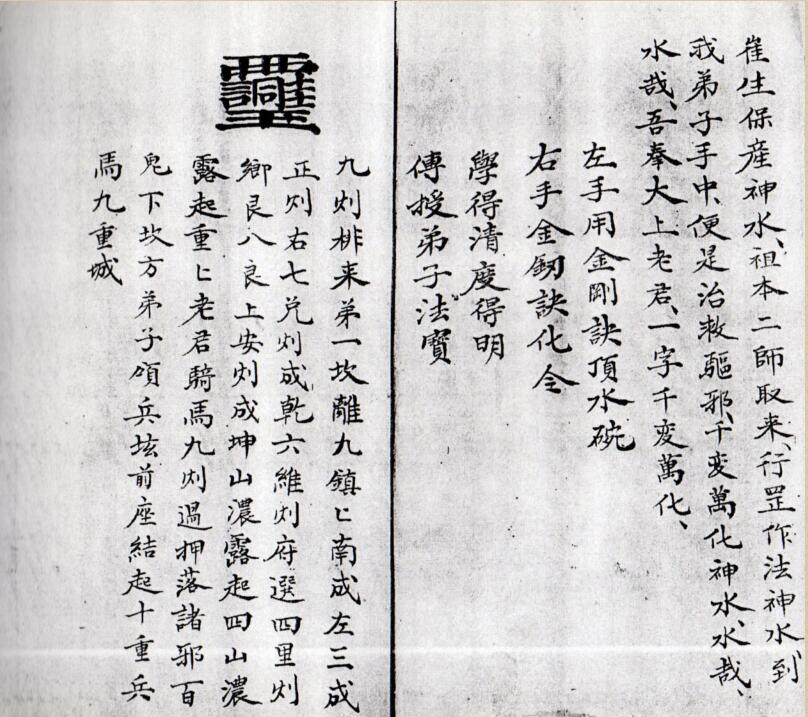 崔生保産神水、祖本二師取来、行罡作法神水到
我弟子手中、便是治救驅邪、千变萬化神水、水哉、
水哉、吾奉大上老君、一字千变萬化、
左手用金剛訣頂水碗
右手金劍訣化令
學得清度得明
傳授弟子法寶
九州排来弟一坎離九鎮〻南成左三成
正州右七兑州成乾六維州府選四里州
鄉艮八良上安州成坤山濃露起四山濃
露起重〻老君騎馬九州過押落諸邪百
鬼下坎方弟子領兵坛前座結起十重兵
馬九重城